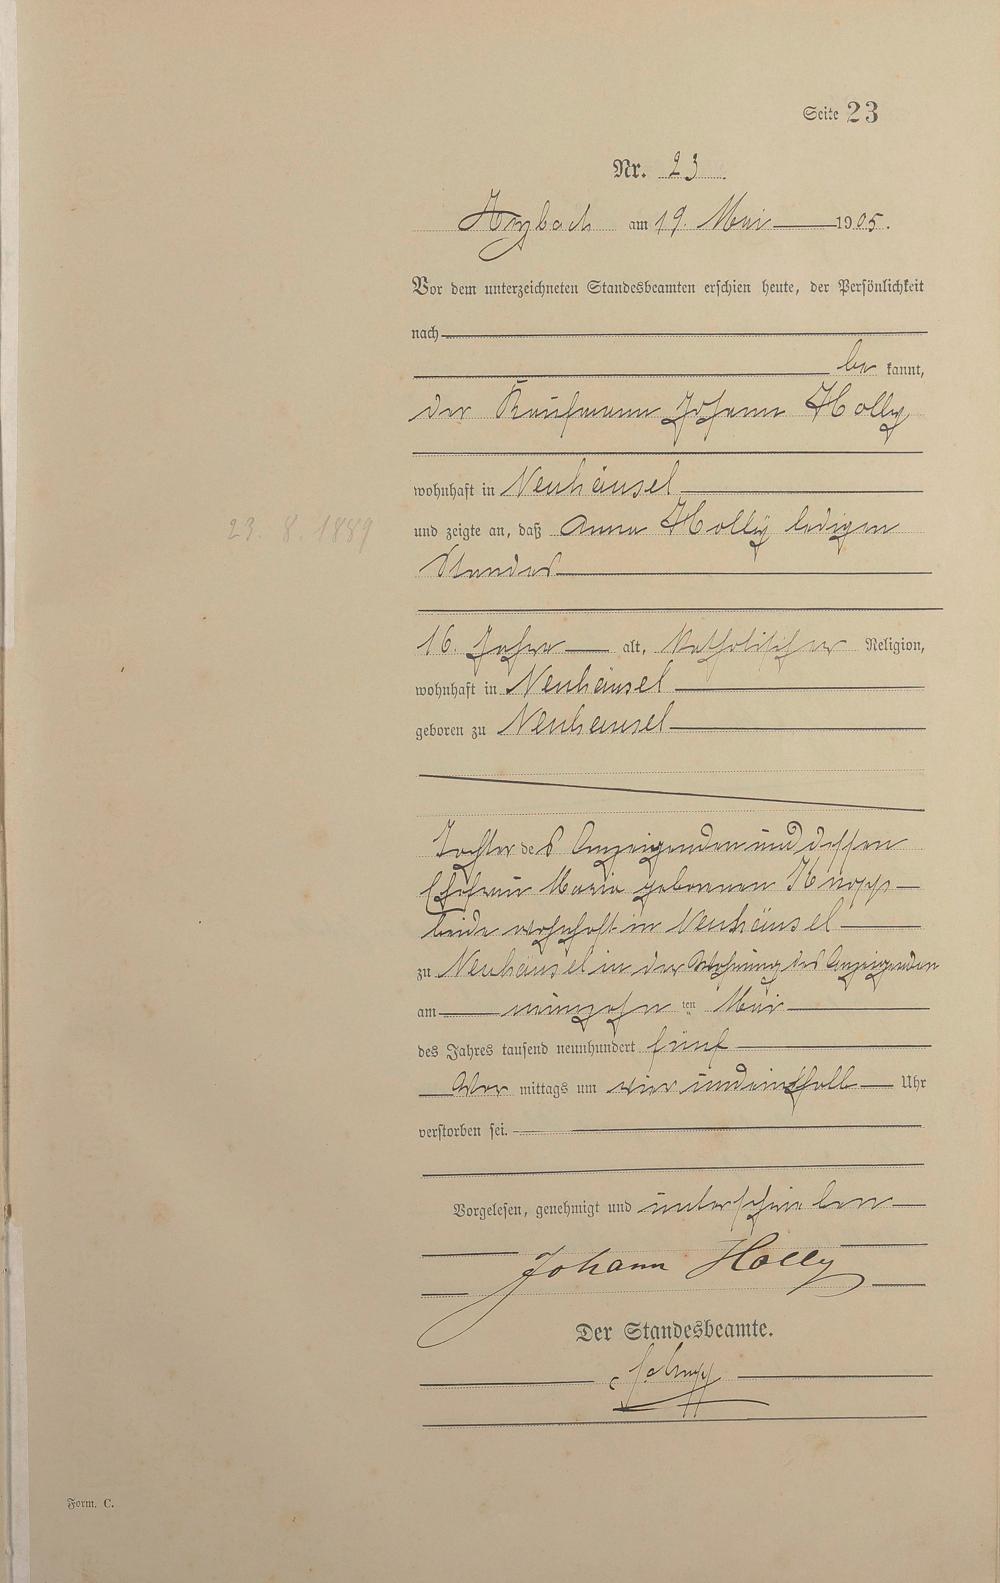 Seite 23
Nr. 23.
Arzbach am 19. Mai 1905.
Vor dem unterzeichneten Standesbeamten erschien heute, der Persönlichkeit
nach
be kannt,
der Kaufmann Johann Holly
wohnhaft in Neuhäusel
23. 8. 1889
und zeigte an, daß Anna Holly ledigen
Standes
16 Jahre alt, katholischer Religion,
wohnhaft in Neuhäusel
geboren zu Neuhäusel
Tochter des Anzeigenden und dessen
Ehefrau Maria geborenen Knopp
beide wohnhaft in Neuhäusel
zu Neuhäusel in der Wohnung des Anzeigenden
am neunzehn ten Mai
des Jahres tausend neunhundert fünf
Vor mittags um vier und einhalb Uhr
verstorben sei.
Vorgelesen, genehmigt und unterschrieben
Johann Holly
Der Standesbeamte.
Form. C.